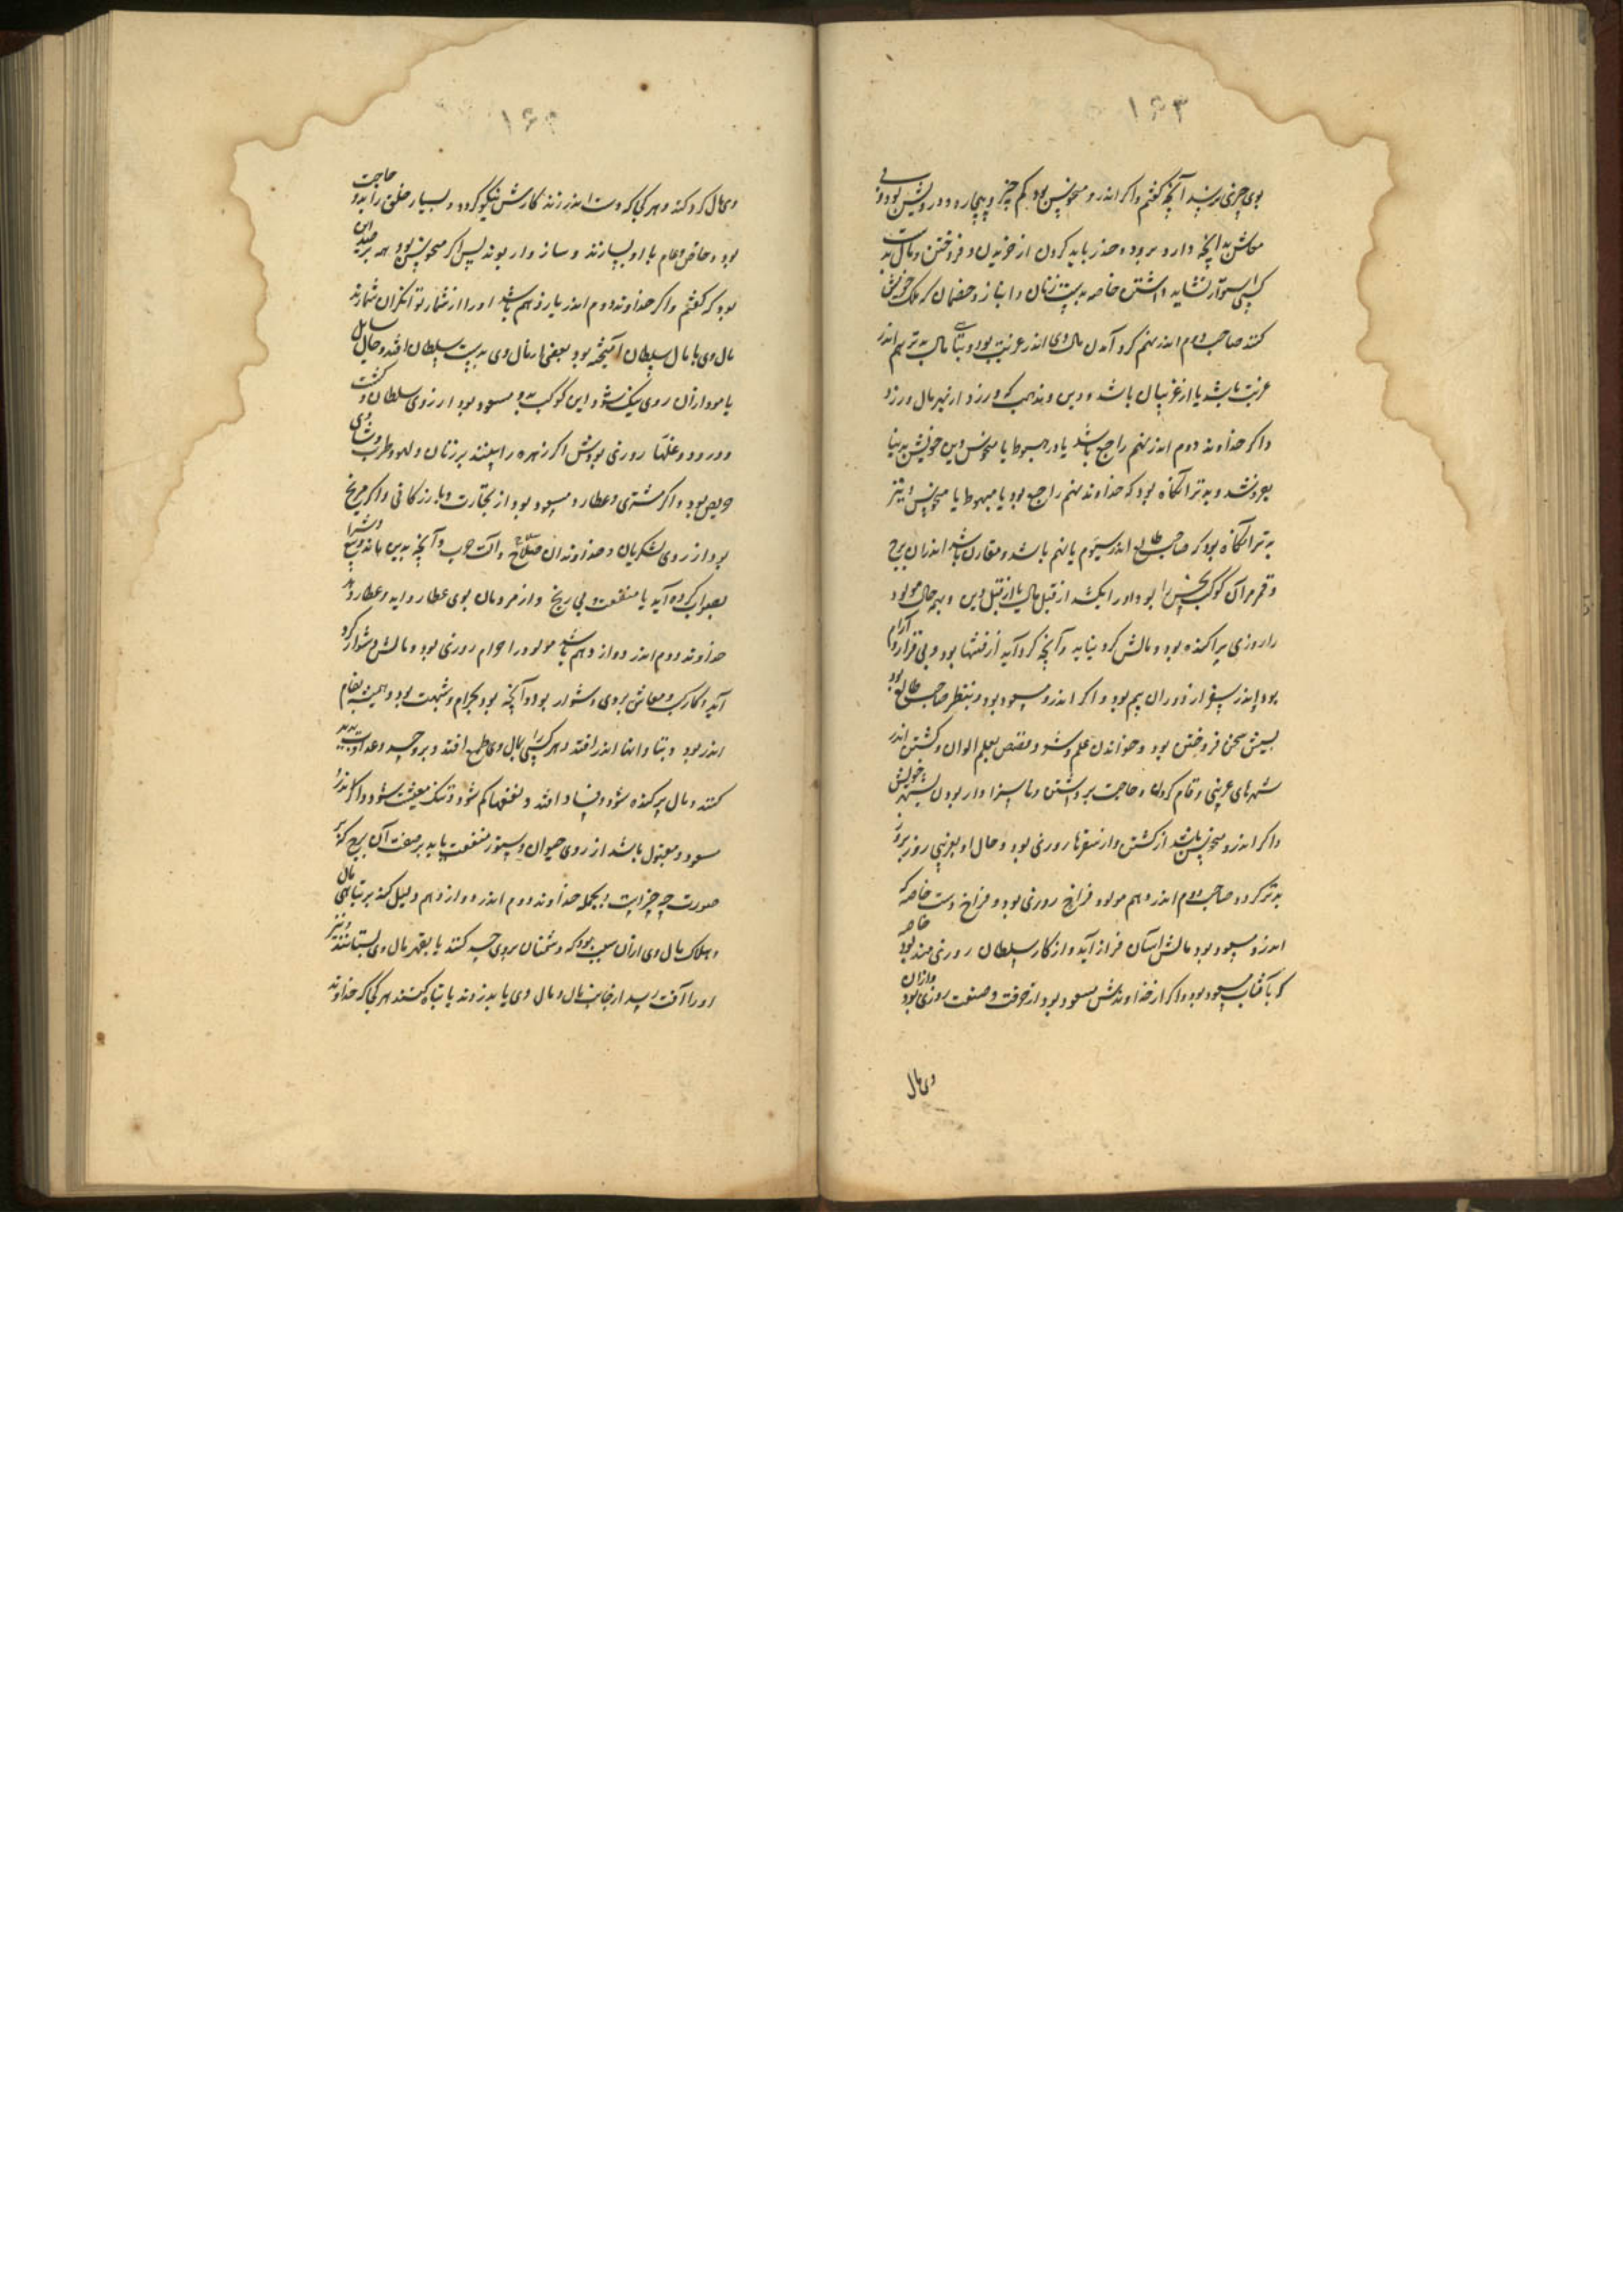 ۱۶۳
بوی چیزی رسد آنچه گفتم واکر اندرو منحوس بود کم چیز و بیچاره و درویش بود و بی
معاش بدانچه دارد برود و حذر باید کردن از خریدن و فروختن و مال بد
کسی استوار نشاید داشتن خاصه بدست زنان و انباز و خصمان که ملک خویش
کنند صاحب دوم اندر نهم کرد آمدن مال وی اندر غربت بود و تباهی مالی بدتر هم اندر
غربت باشد یا از غریبان باشد و دین و مذهب که ورزد از بهر مال ورزد
واکر خداوند دوم اندر نهم راجع باشد یا در هبوط یا منحوس دین خویش بدنیا
بفروشد و بدتر آنگاه بود که خداوند نهم راجع بود یا بهبوط یا منحوس و نیز
بدتر آنگاه بود که صاحب طالع اندر سیوم یا نهم باشد و مقارن باشد اندران برج
و قمر مر آن کوکب نحس را بود اورا بکشد از قبل مال یا از قبل دین و بهر حال مولود
را روزی پراکنده بود و مالش کرد نیاید و آنچه کرد آید از فتنها بود و بی قرار و آرام
بود اندر سفر از دزدان بیم بود واکر اندرو مسعود بود و بنظر صاحب طالع بود
بیش سخن فروختن بود و خواندن علم و شعر و قصص بعلم الوان و کشتن اندر
شهرهای غریبی و قام کردن و حاجت برداشتن و ناسزاوار بودن بشهر خویش
واکر اندرو منحوس باشد از کشتن و از سفرها روزی بود و حال او بغریبی روز بروز
بدتر کردد صاحب دوم اندر دهم مولود فراخ روزی بود و فراخ دست خاصه که
اندرو مسعود بود مالش آسان فراز آید و از کار سلطان روزی مند بود خاصه
که بآفتاب مسعود بود واکر از خداوندش مسعود بود از حرفت و صنعت روزی بود و ازان
وی مال
۱۶۴
وی مال کرد کند و هر کجا که دست اندر زند کارش نیکو کردد و بسیار خلق را بدو حاجت
بود و خاص و عام با او بسازند و سازوار بوند پس اکر منحوس بود همه بر ضد این
بود که کفتم واکر خداوند دوم اندر یازدهم باشد اورا از شمار توانکران شمارند
مال وی با مال سلطان آمیخته بود بعضی از مال وی بدست سلطان افتد و حال سایل
یا مودار آن روی نیک شود این کوکب که بدو مسعود بود از روی سلطان و کشت
و درود و غلتها روزی بودش اکر زهره را بینند بر زنان و لهو و طرب و شادی
حریص بود واکر مشتری و عطارد مسعود بود از تجارت و بازرکانی واکر مریخ
بود از روی لشکریان و خداوندان سلاح و آلت حرب و آنچه بدین ماند و بیع و شرا
بصواب کرده آید با منفعت و بی رنج و از مردمان بوی عطا روا آید و عطا رود
خداوند دوم اندر دوازدهم باشد مولود را حرام روزی بود و مالش دشوار کرد
آید و کارکب و معاش بر وی دشوار بود و آنچه بود بحرام و شبهت بود و همیشه بغم
اندر بود و بتاوانها اندر افتد و هر کسی را بمال وی طمع افتد و بروی حسد و عداوت پدید
کنند و مال پرکنده شود و فساد افتد و نفعها کم شود و تنک معیشت شود واکر اندرو
مسعود و مقبول باشد از روی حیوان و ستور منفعت یابد بر صفت آن برج که بر
صورت چه چیز است و بجمله خداوند دوم اندر دوازدهم دلیل کند بر تباهی مال
و هلاک مال وی از آن سبب بود که دشمنان بروی حسد کنند یا بقهر مال وی بستانند و نیز
اورا آفت رسد از خاین مال و مال وی یا بدزدند یا تباه کنند هر کجا که خداوند